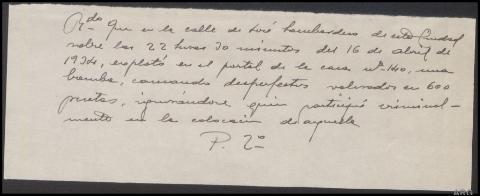 Rdo que en la calle de José Lombardero de esta Ciudad
sobre las 22 horas 30 minutos del 16 de abril de
1934, explotó en el portal de la casa nº 140, una
bomba, causando desperfectos valorados en 600
pesetas, ignorándose quien participó criminal-
mente en la colocación de aquella
P. 2º